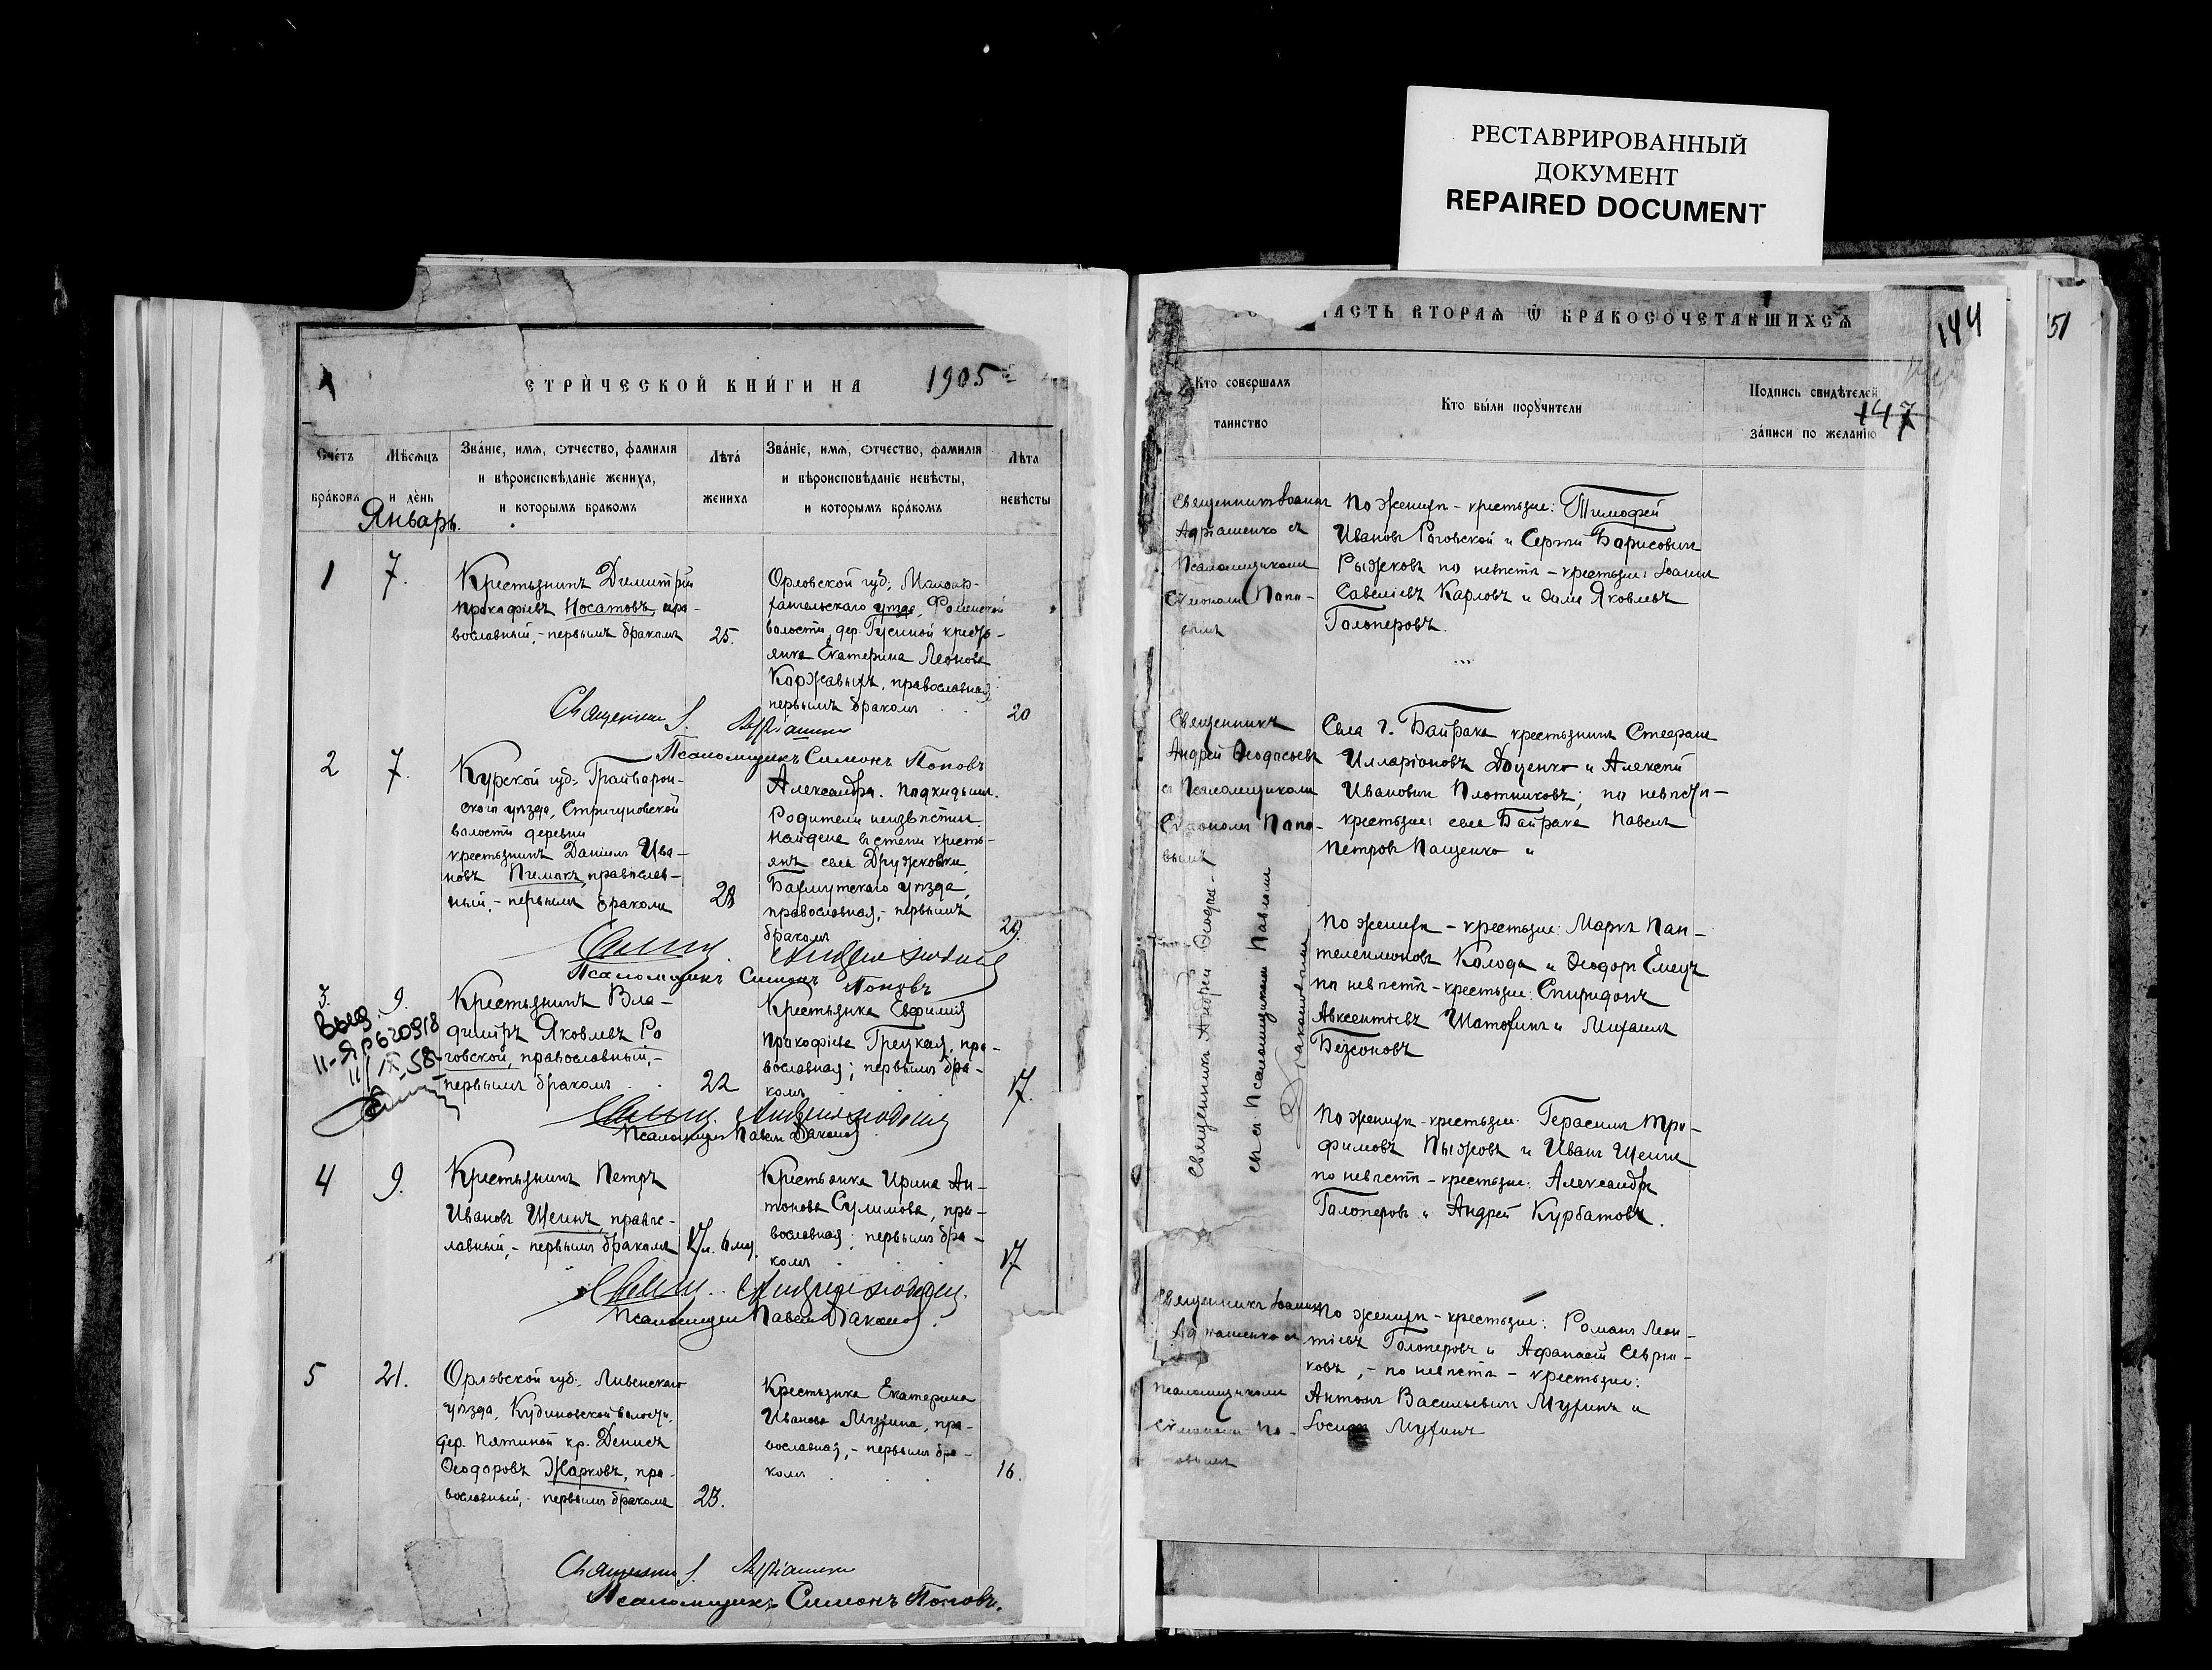 РЕСТАВРИРОВАННЫЙ
ДОКУМЕНТ
REPAIRED DOCUMENT
СТРИЧЕСКОЙ КНИГИ НА 1905
Счетъ
браковъ
Мѣсяцъ
и день
Званіе, имя, отчество, фамилія
и вѣроисповѣданіе жениха,
и которымъ бракомъ
Лѣта
жениха
Званіе, имя, отчество, фамилія
и вѣроисповѣданіе невѣсты,
и которымъ бракомъ
Лѣта
невѣсты
Январь.
1
7.
Крестьянинъ Димитрій
Прокофіевъ Носатовъ, пра-
вославный, - первымъ бракомъ
25.
Орловской губ., Малоар-
хангельскаго уѣзда,
волости, дер. Гусиной кресть-
янка Екатерина Леонова
Коржавыхъ, православная,
первымъ бракомъ
20
Священник І.
Псаломщикъ Симонъ Поповъ
2
7.
Курской губ., Грайворон-
скаго уѣзда, Стригуновской
волости деревни
крестьянинъ Даніилъ Ива-
новъ Пимахъ, православ-
ный, - первымъ бракомъ
28
Александра. Подкидышъ.
Родители неизвѣстны.
Найдена въ степи кресть-
янъ села Дружковки,
Бахмутскаго уѣзда,
православная, - первымъ
бракомъ
29.
Псаломщикъ Симонъ Поповъ
3.
9.
Выд.
11/IX.58
Крестьянинъ Вла-
диміръ Яковлевъ Ро
говской, православный, -
первымъ бракомъ
22
Крестьянка Евфимія
Прокофіева Грецкая, пра-
вославная; первымъ бра-
комъ
17.
Псаломщик Павел Дьаконов
4
9.
Крестьянинъ Петръ
Ивановъ Щеинъ, правос-
лавный, - первымъ бракомъ
17 л. 6 мц.
Крестьянка Ирина Ан-
тонова Сулимова, пра-
вославная; первымъ бра-
комъ
17
Псаломщик Павел Дьаконов
5
21.
Орловской губ., Ливенскаго
уѣзда, Кудиновской волости,
дер. Пятиной кр. Денисъ
Ѳеодоровъ Жарковъ, пра-
вославный, - первымъ бракомъ
23.
Крестьянка Екатерина
Иванова Мухина, пра-
вославная, - первымъ бра-
комъ
16.
Священник І.
Псаломщикъ Симонъ Поповъ.
АСТЬ ВТОРАЯ Ѿ БРАКОСОЧЕТАВШИХСЯ
144
51
Кто совершалъ
таинство
Кто были поручители
Подпись свидѣтелей
записи по желанію
147
Священникъ Іоаннъ
Адріашенко съ
Псаломщикомъ
Сѵмономъ Попо-
вымъ
По женихѣ - крестьяне: Тимофей
Ивановъ Роговской и Сергѣй Борисовичъ
Рыжковъ по невѣстѣ - крестьяне: Іоаннъ
Савеліевъ Карловъ и Яковлевъ
Голоперовъ.
Священникъ
Андрей Ѳеодосьевъ
съ Псаломщикомъ
Сѵмономъ Попо-
вымъ
Села Г. Байрака крестьянинъ Стефанъ
Илларіоновъ Доценко и Алексѣй
Ивановичъ Плотниковъ; по невѣстѣ -
крестьяне: села Байрака Павелъ
Петровъ Пащенко
Священникъ Андрей
съ Псаломщикомъ Павломъ
Дьаконовымъ
По женихѣ - крестьяне: Маркъ Пан-
телеимоновъ Колода и Ѳеодоръ Емецъ
по невѣстѣ - крестьяне: Спиридонъ
Авксентіевъ Шатохинъ и Михаилъ
Безсоновъ
По женихѣ - крестьяне: Герасимъ Тро-
фимовъ Пыжовъ и Иванъ Щеинъ
по невѣстѣ - крестьяне: Александръ
Голоперовъ и Андрей Курбатовъ.
Священникъ Іоаннъ
Адріашенко съ
псаломщикомъ
Сѵмономъ По-
повымъ
По женихѣ - крестьяне: Романъ Леон-
тіевъ Голоперовъ и Афанасій Севрю-
ковъ, - по невѣстѣ - крестьяне:
Антонъ Васильевичъ Мухинъ и
Іосифъ Мухинъ